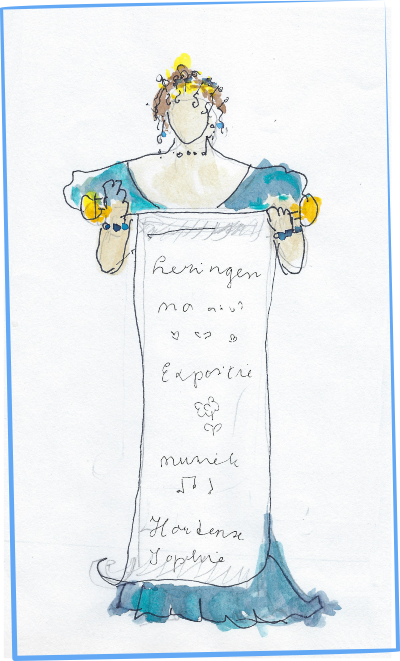 Lezingen
Expositie
muziek
Hortense
Sophie